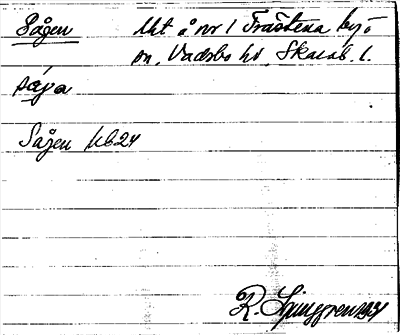 Sågen Ukt å nr 1 Fråstena by, o
on, Vadsbo hd, Skarab. l.
såga
Sågen UB24
R. Ljunggren